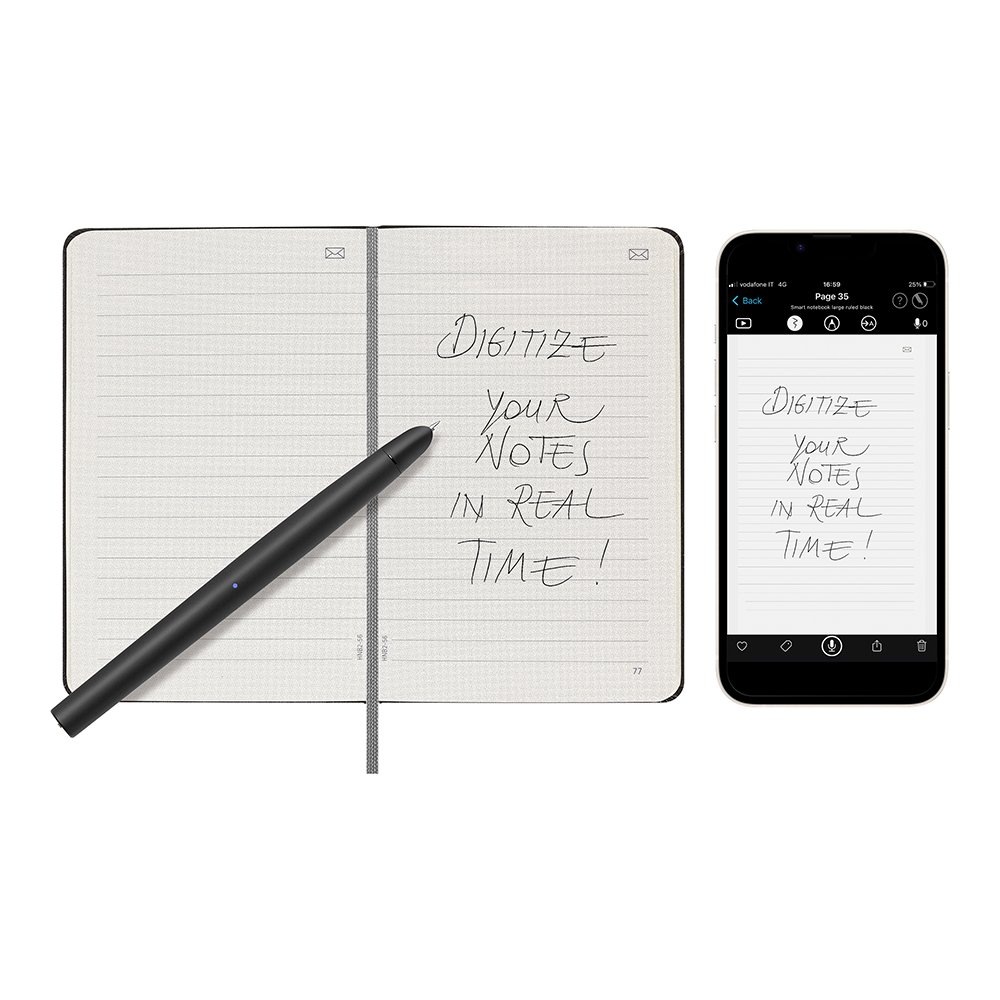 DIGITIZE
YOUR
NOTES
IN REAL
TIME!
HNB2-56
HNB2-56
77
vodafone IT 4G
16:59
25%
Back
Page 35
?
Smart notebook large ruled black
A
A
0
DIGITIZE
YOUR
NOTES
IN REAL
TIME!